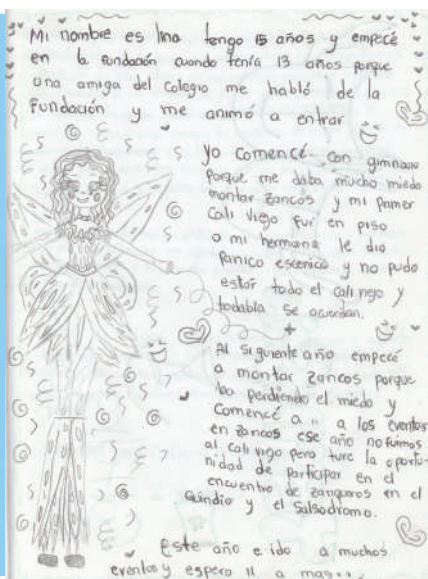 Mi nombre es Ina tengo 15 años y empecé
en la fundación cuando tenía 13 años porque
una amiga del colegio me habló de la
Fundación y me animó a entrar
yo comencé con gimnasia
porque me daba mucho miedo
montar zancos y mi primer
Cali viejo fui en piso
a mi hermana le dio
Panico escenico y no pudo
estar todo el cali viejo y
todabia se acuerdan.
Al siguiente año empecé
a montar zancos porque
iba perdiendo el miedo y
Comencé a ir a los eventos
en zancos ese año no fuimos
al cali viejo pero tuve la oporto-
nidad de participar en el
encuentro de zanqueros en el
Quindio y el Salsodromo.
Este año e ido a muchos
eventos y espero ir a mas